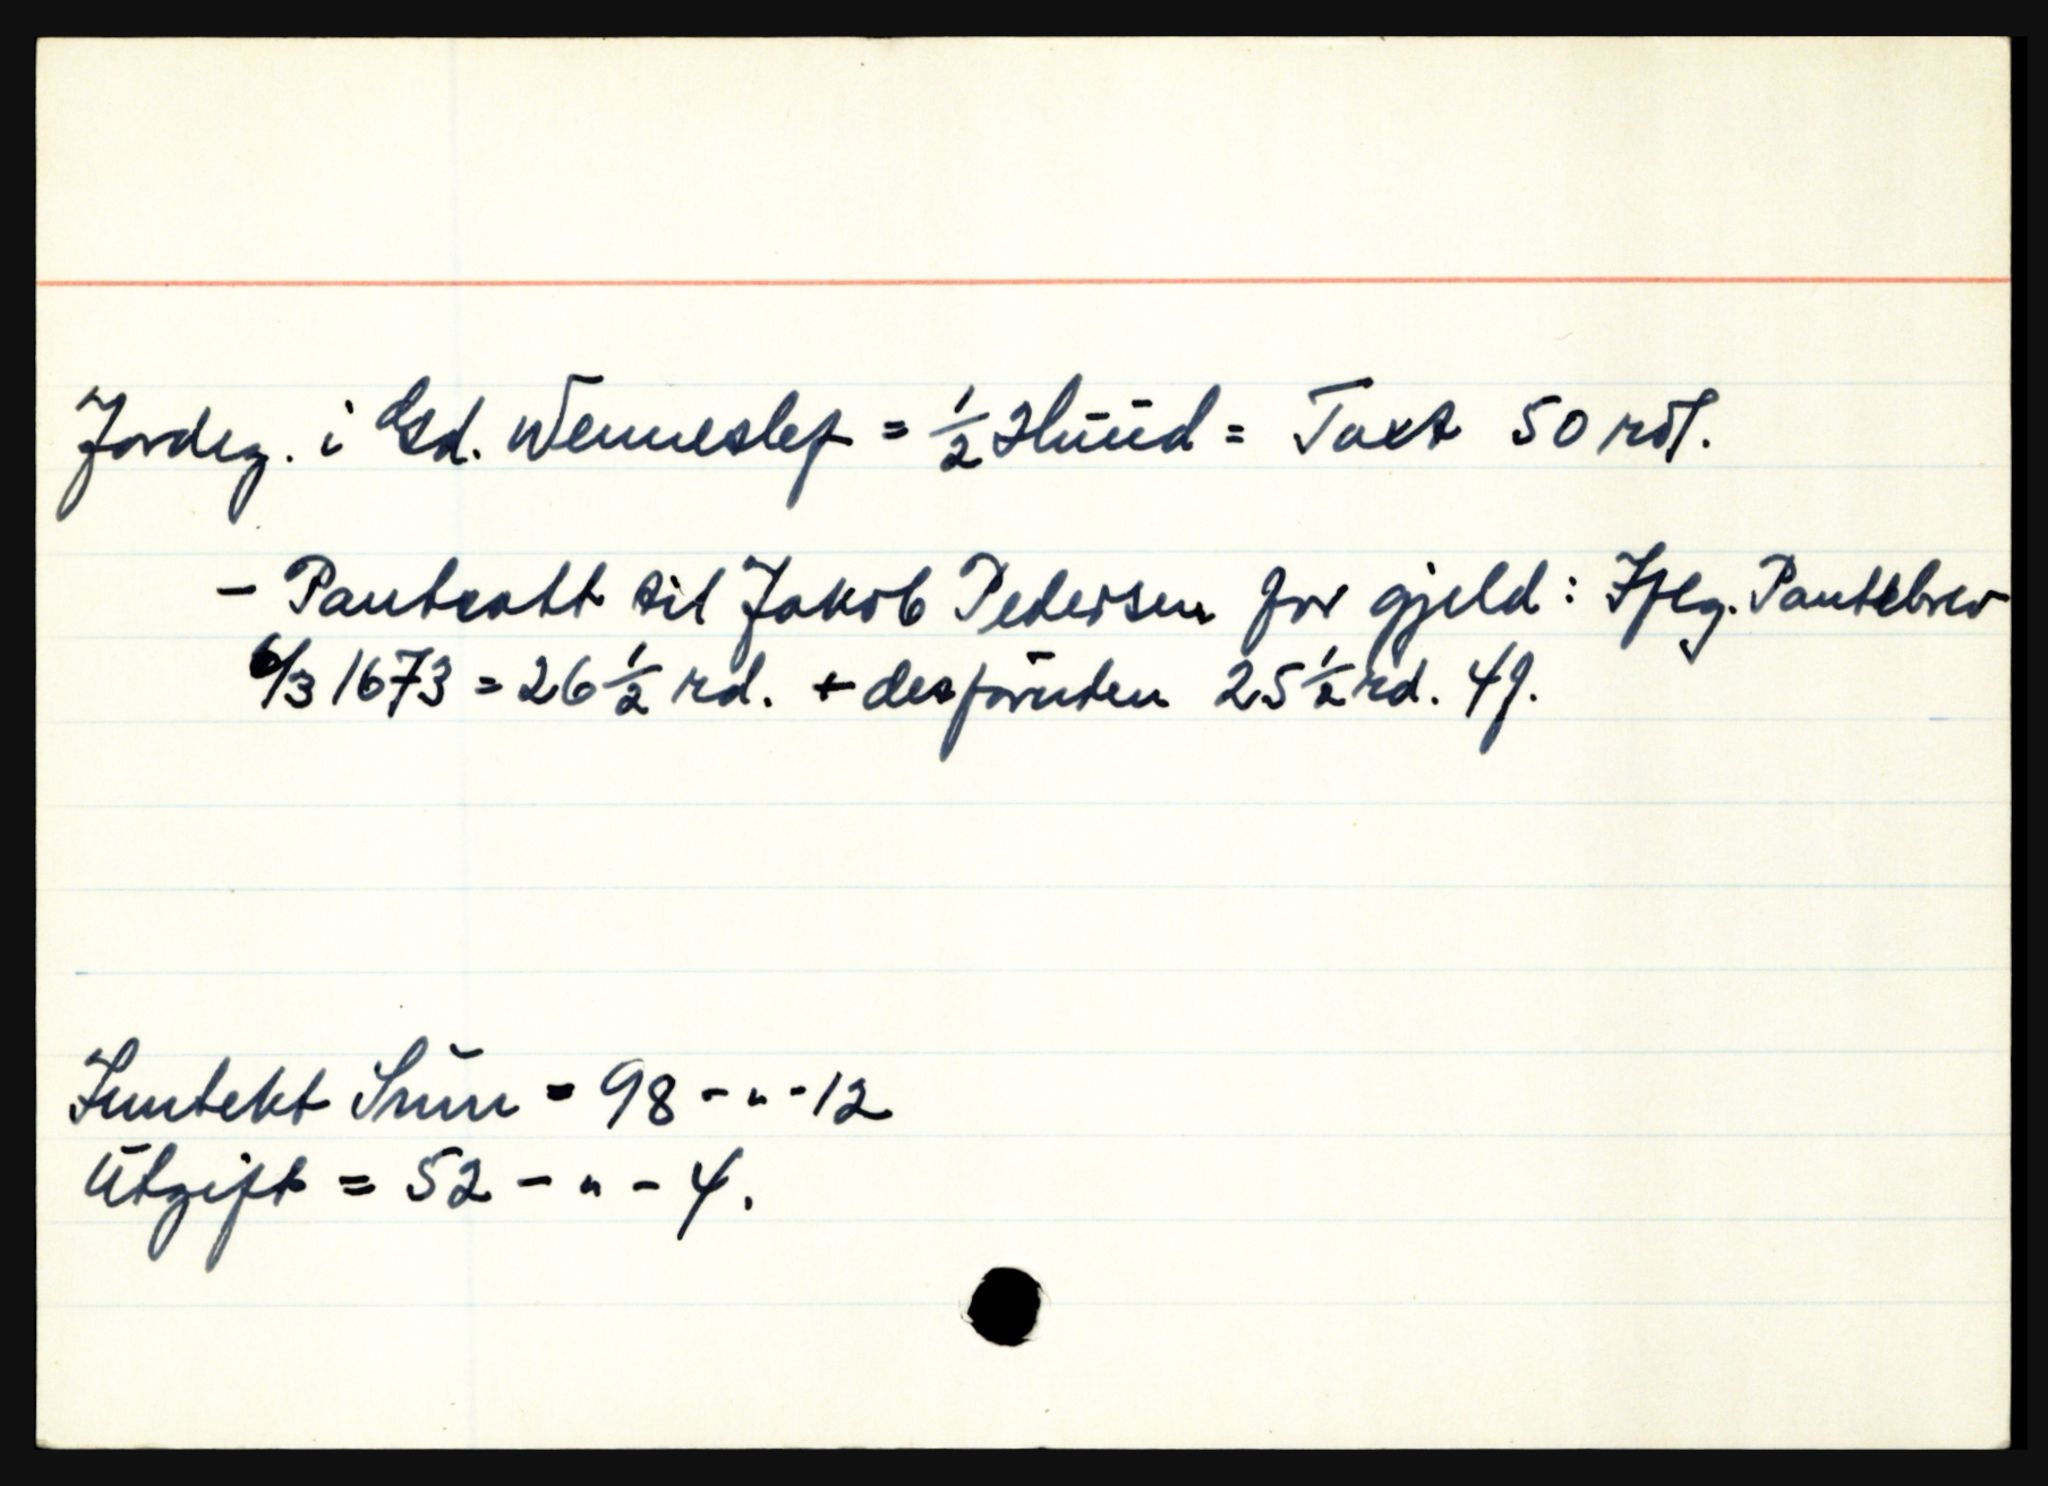 Jordeg. i Gd. Wenneslef = 1/2 Huud = Taxt 50 rdl.
- Pantsatt til Jakob Pedersen for gjeld: Iflg. Pantebrev
6/3 1673 = 26 1/2 rd. + desforuten 25 1/2 rd. 4 β.
Inntekt Sum = 98 - " - 12
Utgift = 52 - " - 4.